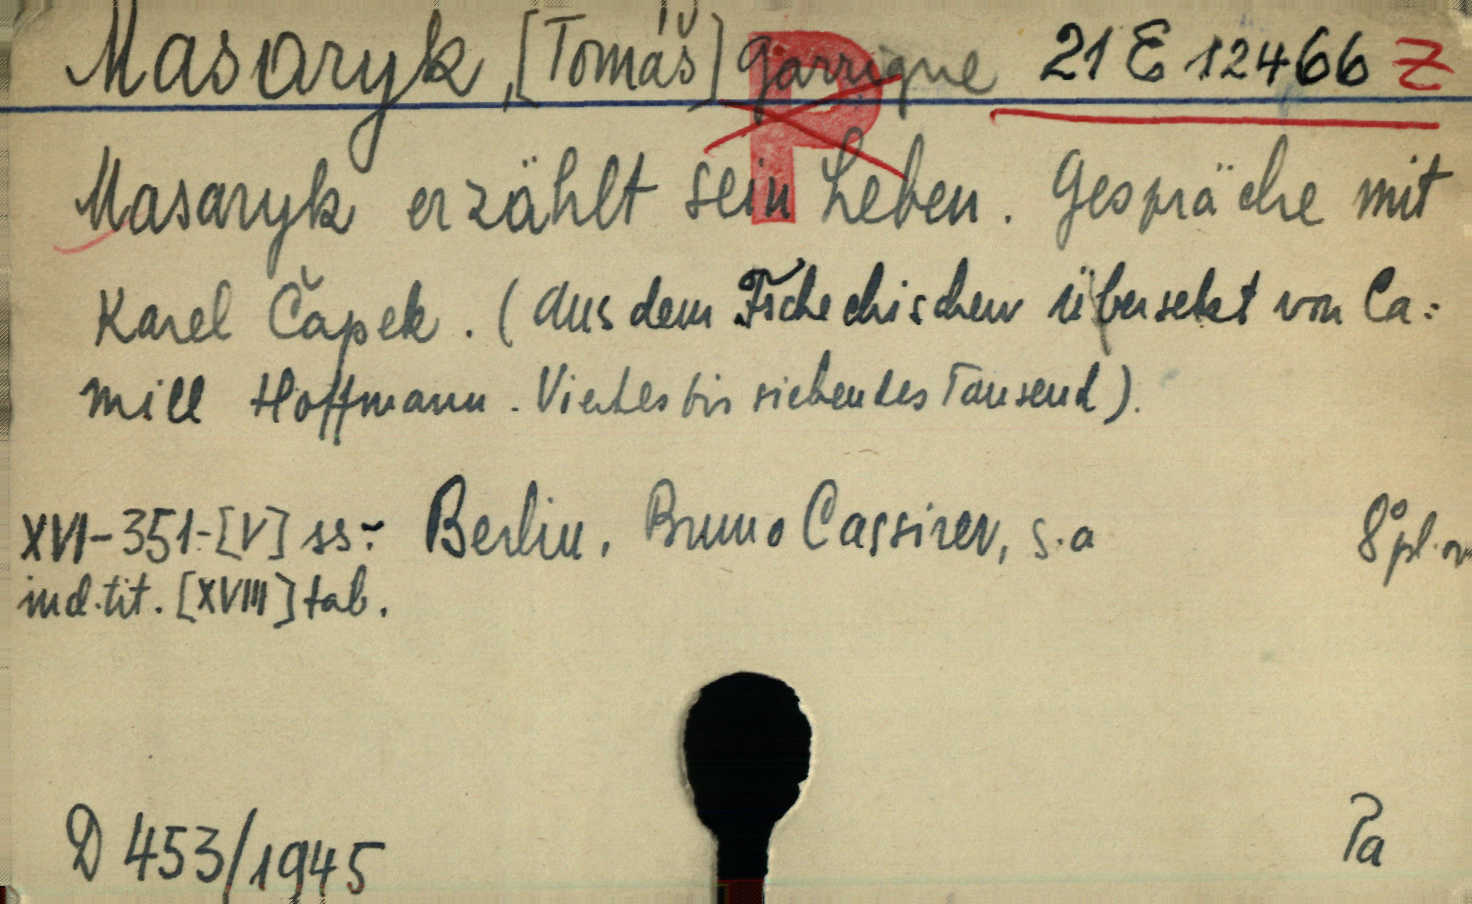 Masaryk, [Tomáš] Garrigue 21 E 12466 Z
P
Masaryk erzählt sein Leben. Gespräche mit
Karel Čapek. (Aus dem Tschechischen übersetzt von Ca=
mill Hoffmann. Viertes bis siebendes Tausend).
XVI-351-[V] ss: Berlin, Bruno Cassirer, s.a 8° pl.
ind.tit. [XVIII] tab.
D 453/1945 Pa